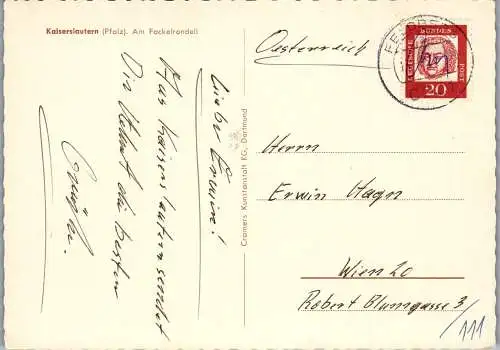 Kaiserslautern (Pfalz). Am Fackelrondell
Lieber Erwin!
Aus Kaiserslautern sendet
Dir Helmut die besten
Grüße.
Cramers Kunstanstalt KG, Dortmund
Oesterreich
DEUTSCHE
BUNDES
POST
20
Herrn
Erwin Hagn
Wien 20
Robert Blumgasse 3
/111